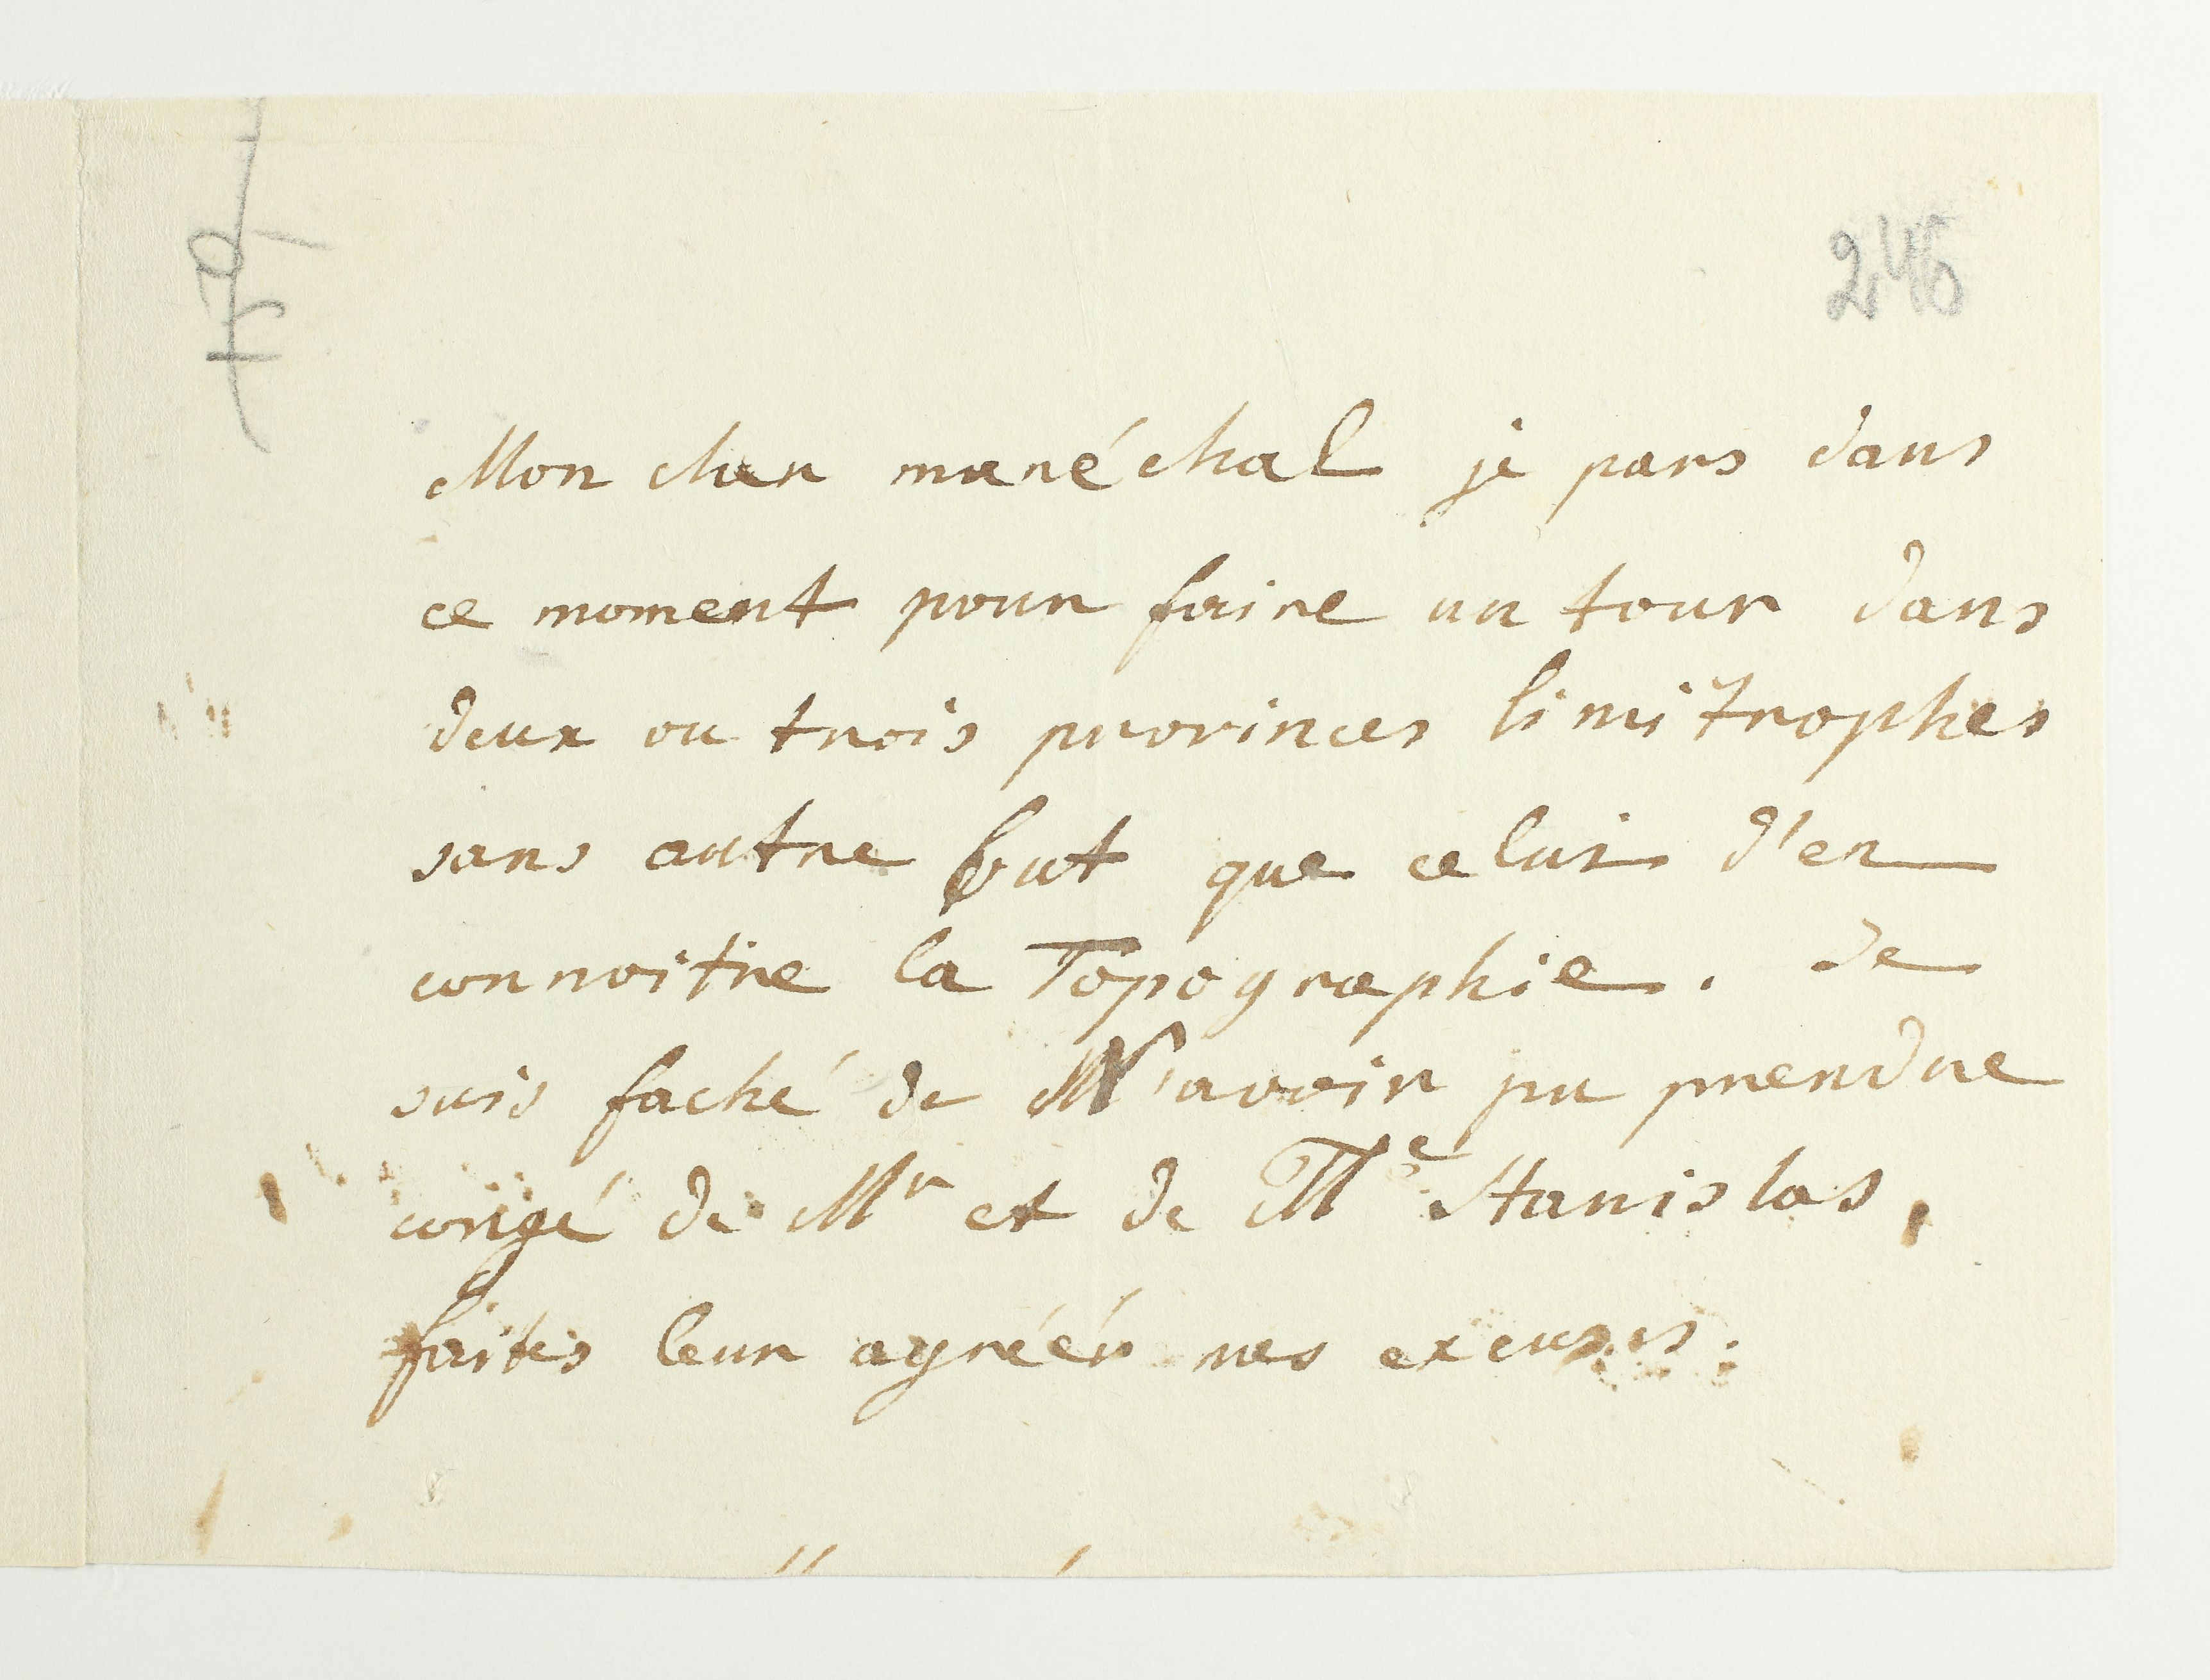 246
Mon cher maréchal je pars dans
ce moment pour faire un tour dans
deux ou trois provinces limitrophes
sans autre but que celui d'en
connoitre la Topographie. Je
suis faché de N'avoir pu prendre
congé de Mr et de Me Stanislas,
faites leur agréér mes excuses.